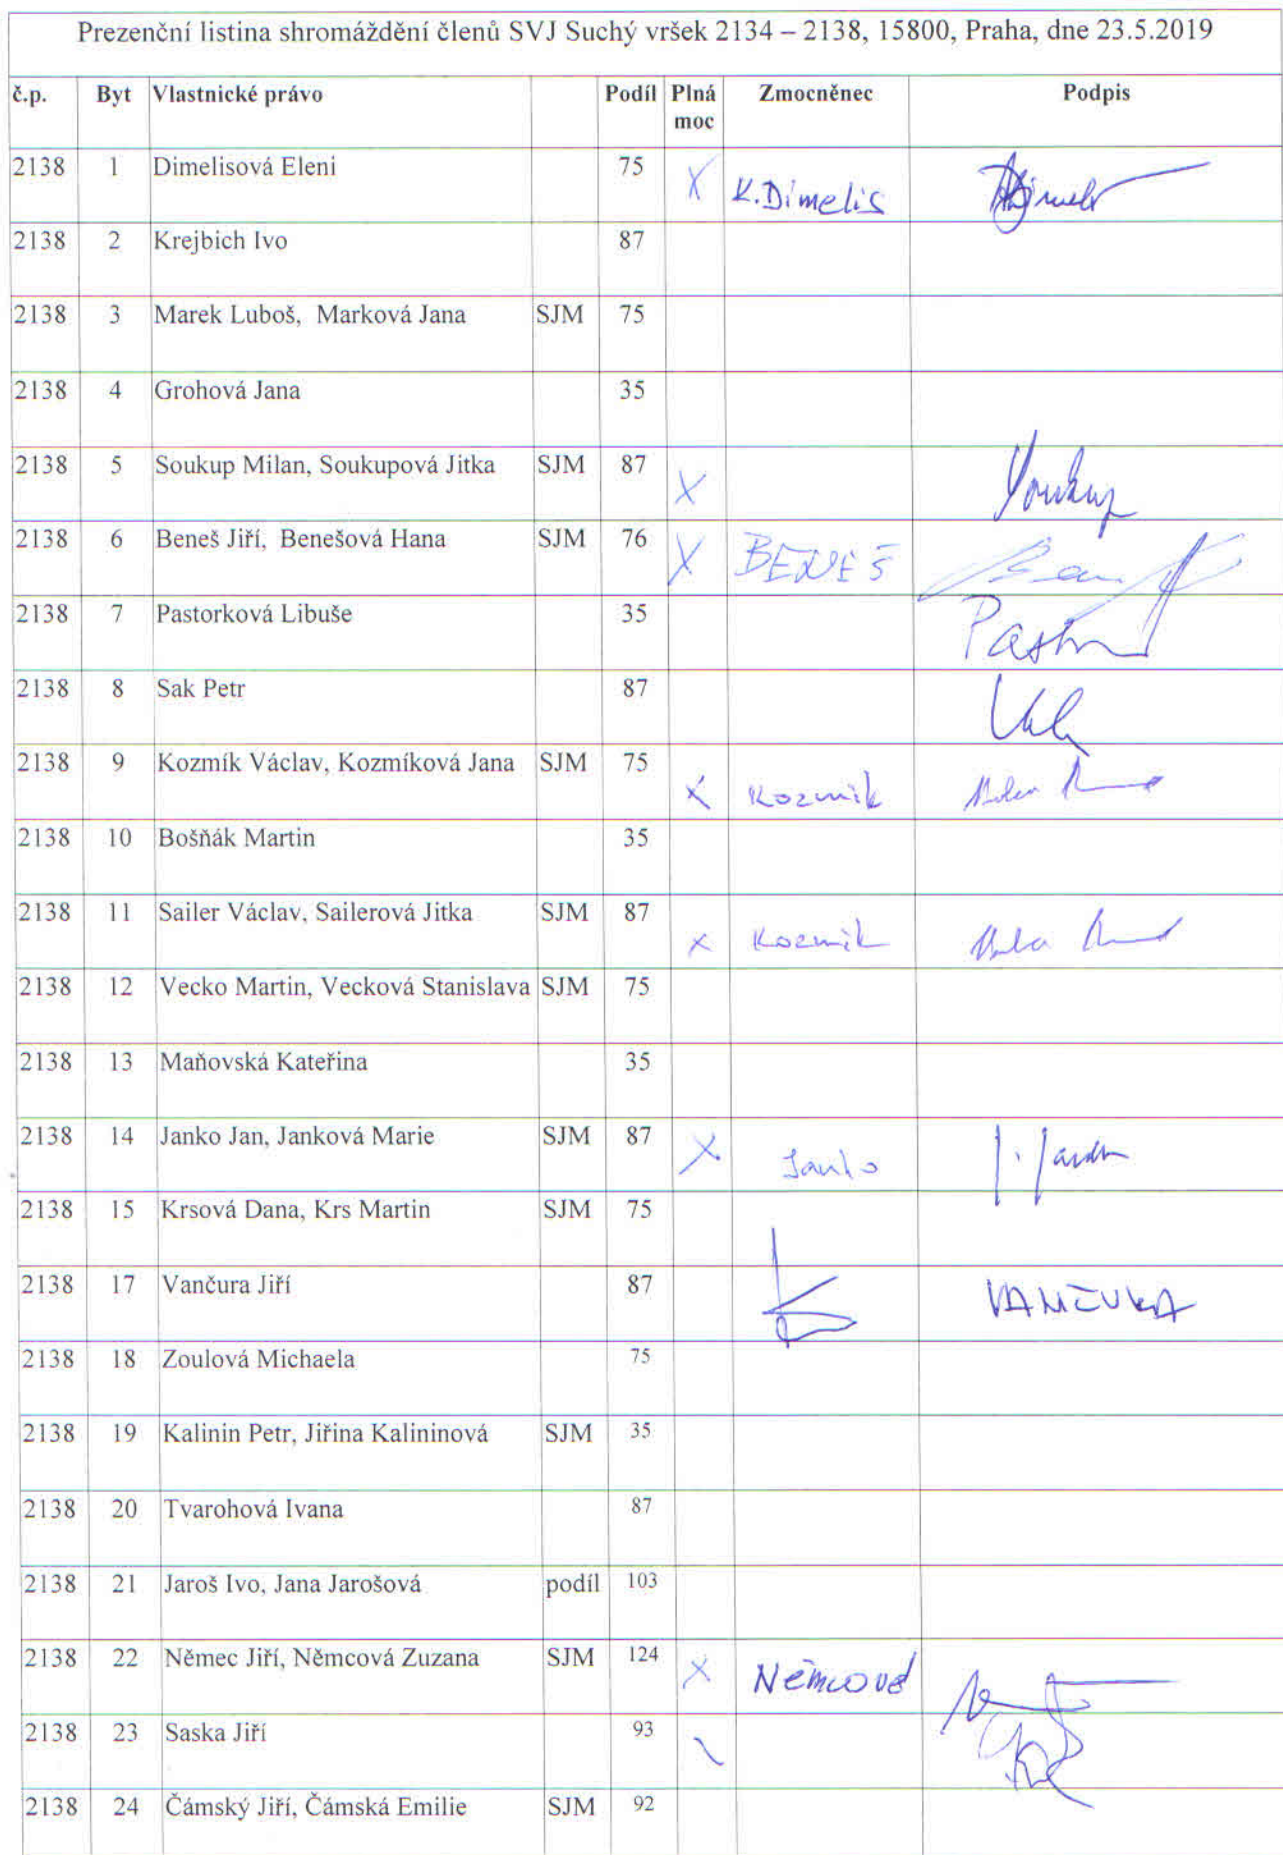 Prezenční listina shromáždění členů SVJ Suchý vršek 2134 – 2138, 15800, Praha, dne 23.5.2019
č.p. Byt Vlastnické právo Podíl Plná moc Zmocněnec Podpis
2138 1 Dimelisová Eleni 75 X K.Dimelis
2138 2 Krejbich Ivo 87
2138 3 Marek Luboš, Marková Jana SJM 75
2138 4 Grohová Jana 35
2138 5 Soukup Milan, Soukupová Jitka SJM 87 X
2138 6 Beneš Jiří, Benešová Hana SJM 76 X BENEŠ
2138 7 Pastorková Libuše 35
2138 8 Sak Petr 87
2138 9 Kozmík Václav, Kozmíková Jana SJM 75 X Kozmik
2138 10 Bošňák Martin 35
2138 11 Sailer Václav, Sailerová Jitka SJM 87 X Kozmik
2138 12 Vecko Martin, Vecková Stanislava SJM 75
2138 13 Maňovská Kateřina 35
2138 14 Janko Jan, Janková Marie SJM 87 X Janko
2138 15 Krsová Dana, Krs Martin SJM 75
2138 17 Vančura Jiří 87 VANČURA
2138 18 Zoulová Michaela 75
2138 19 Kalinin Petr, Jiřina Kalininová SJM 35
2138 20 Tvarohová Ivana 87
2138 21 Jaroš Ivo, Jana Jarošová podíl 103
2138 22 Němec Jiří, Němcová Zuzana SJM 124 X Němcová
2138 23 Saska Jiří 93
2138 24 Čámský Jiří, Čámská Emilie SJM 92